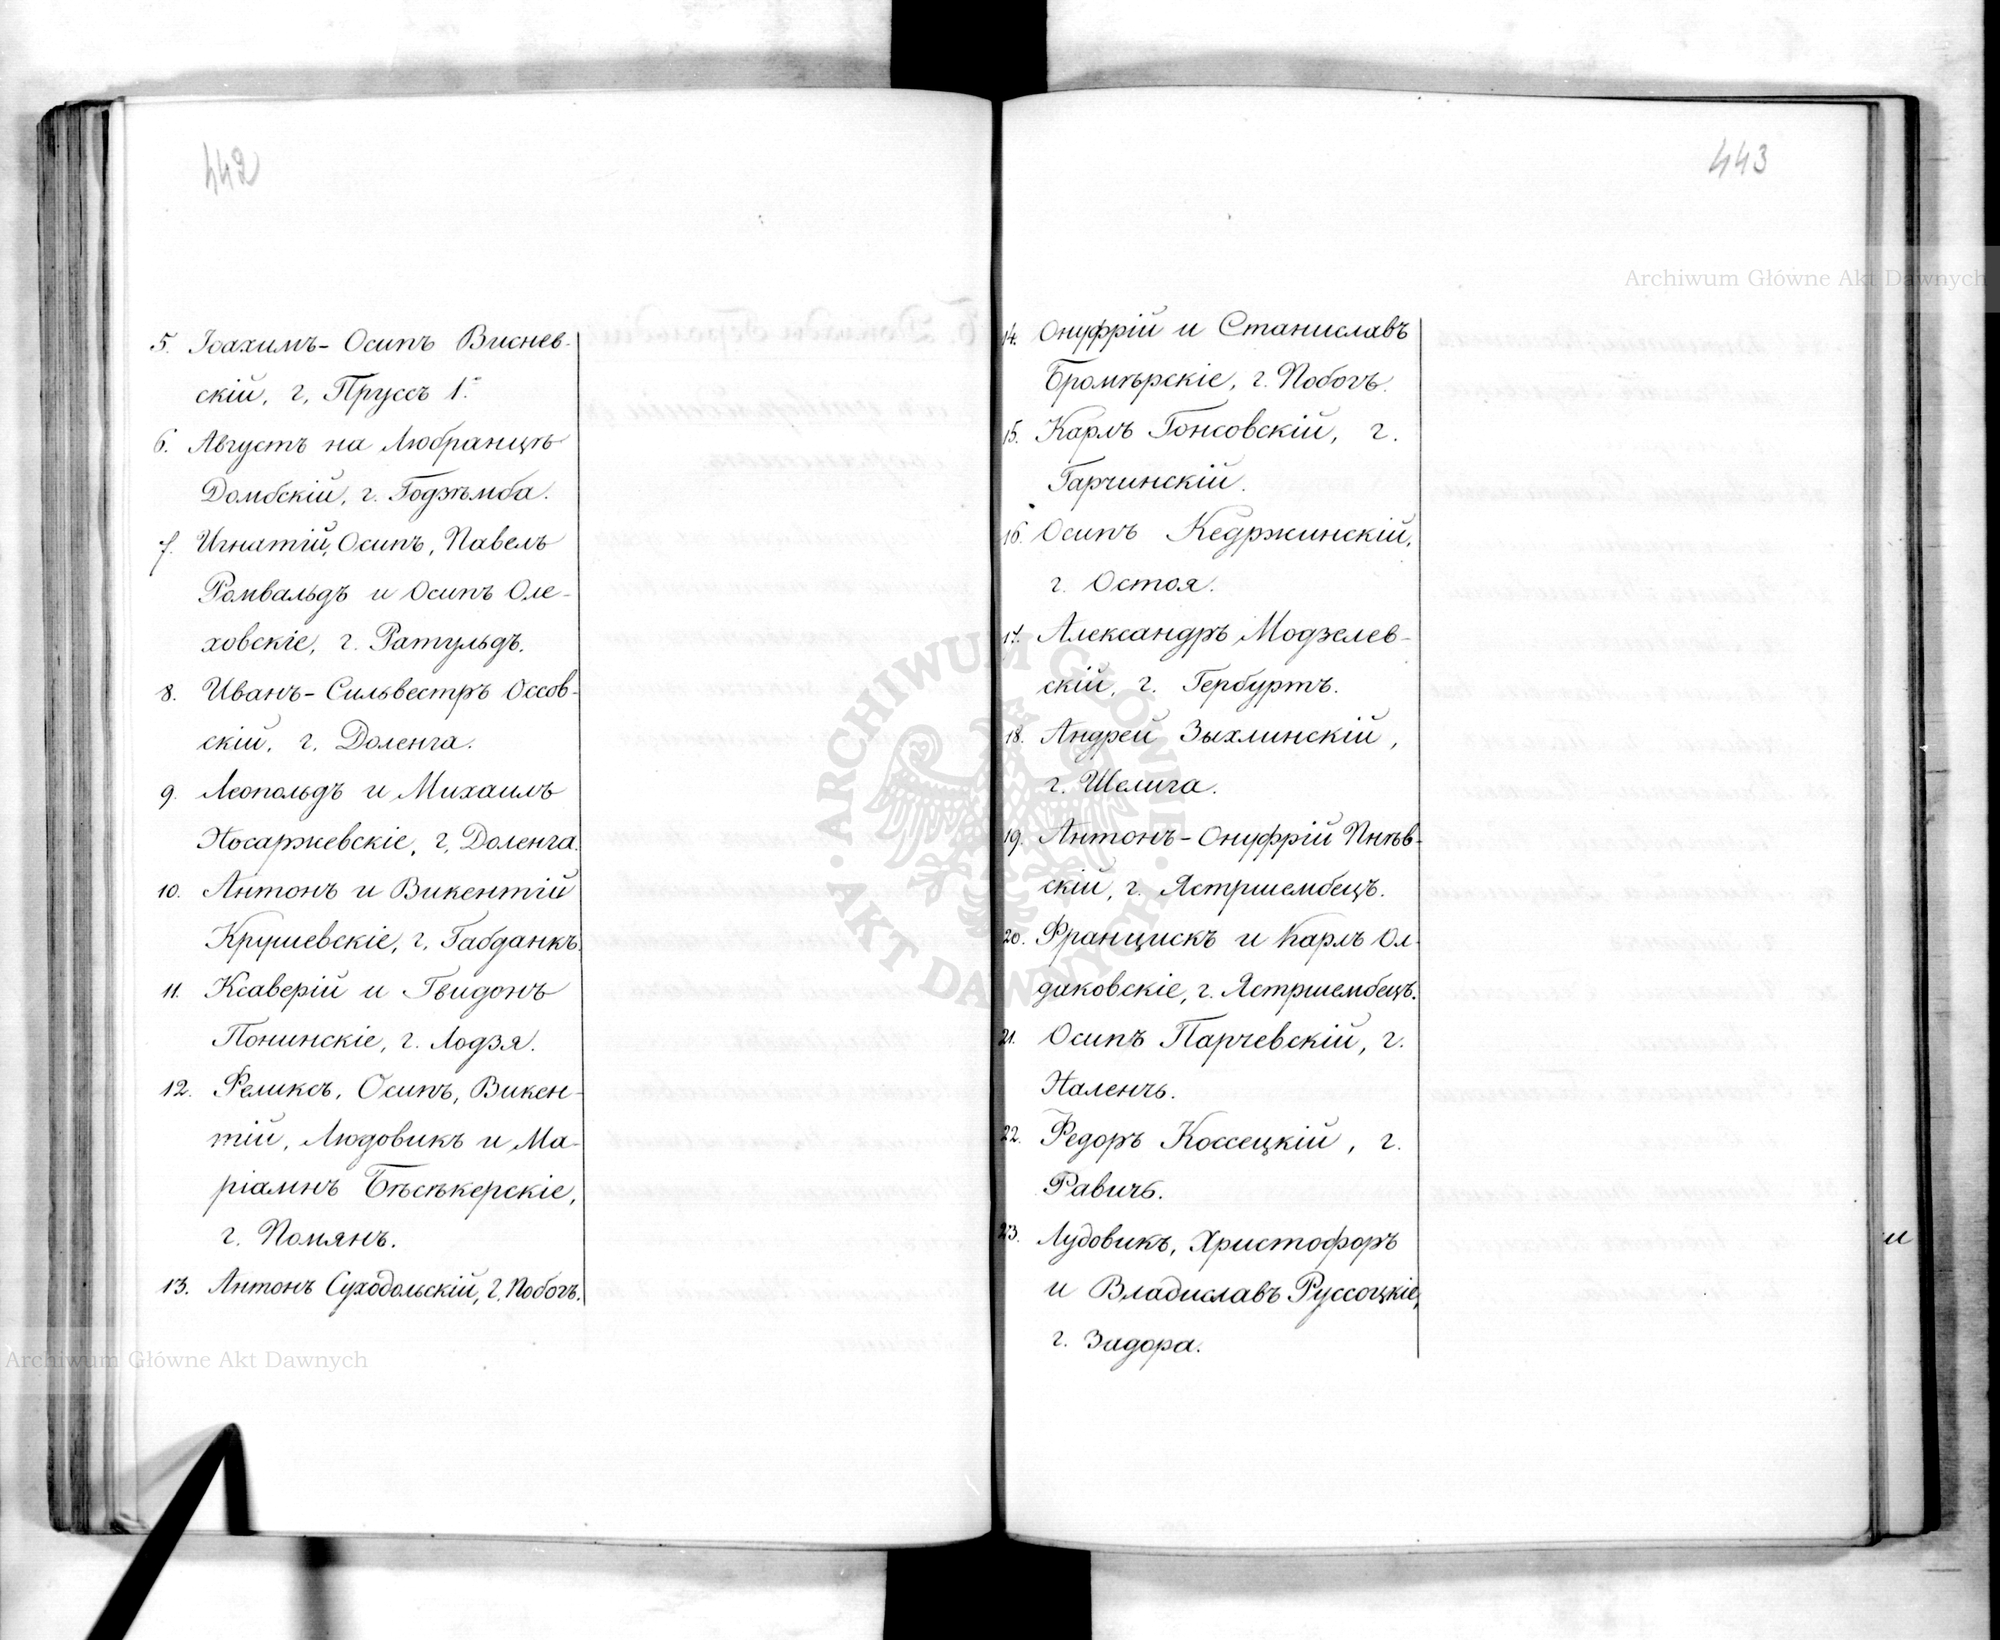 442
5. Іоахимъ-Осипъ Виснев-
скій, г, Пруссъ 1.º
6. Августъ на Любранцѣ
Домбскій, г. Годзѣмба.
7. Игнатій, Осипъ, Павелъ
Ромвальдъ и Осипъ Оле-
ховскіе, г. Ратульдъ.
8. Иванъ-Сильвестръ Оссов-
скій, г. Доленга.
9. Леопольдъ и Михаилъ
Носаржевскіе, г, Доленга.
10. Антонъ и Викентій
Крушевскіе, г, Габданкъ.
11. Ксаверій и Гвидонъ
Понинскіе, г. Лодзя.
12. Феликсъ, Осипъ, Викен-
тій, Людовикъ и Ма-
ріамнъ Бѣсѣкерскіе,
г. Помянъ.
13. Антонъ Суходольскій, г. Побогъ.
443
14. Онуфрій и Станиславъ
Бромѣрскіе, г. Побогъ.
15. Карлъ Гонсовскій, г.
Гарчинскій.
16. Осипъ Кедржинскій,
г. Остоя.
17. Александръ Модзелев-
скій, г. Гербуртъ.
18. Андрей Зыхлинскій,
г. Шелига.
19. Антонъ-Онуфрій Пнѣв-
скій, г. Ястршембецъ.
20. Францискъ и Карлъ Ол-
даковскіе, г. Ястршембецъ.
21. Осипъ Парчевскій, г.
Наленчъ.
22. Федоръ Коссецкій, г.
Равичъ.
23. Лудовикъ, Христофоръ
и Владиславъ Руссоцкіе,
г. Задора.
и
Archiwum Główne Akt Dawnych
Archiwum Główne Akt Dawnych
· ARCHIWUM GŁÓWNE · AKT DAWNYCH